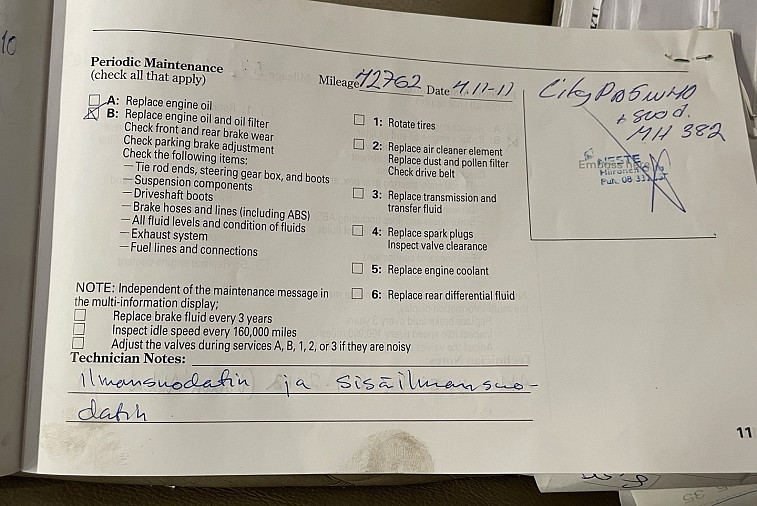 10
Periodic Maintenance
(check all that apply)
Mileage 72762 Date 4.11-11
A: Replace engine oil
B: Replace engine oil and oil filter
Check front and rear brake wear
Check parking brake adjustment
Check the following items:
—Tie rod ends, steering gear box, and boots
—Suspension components
—Driveshaft boots
—Brake hoses and lines (including ABS)
—All fluid levels and condition of fluids
—Exhaust system
—Fuel lines and connections
NOTE: Independent of the maintenance message in
the multi-information display;
Replace brake fluid every 3 years
Inspect idle speed every 160,000 miles
Adjust the valves during services A, B, 1, 2, or 3 if they are noisy
1: Rotate tires
2: Replace air cleaner element
Replace dust and pollen filter
Check drive belt
3: Replace transmission and
transfer fluid
4: Replace spark plugs
Inspect valve clearance
5: Replace engine coolant
6: Replace rear differential fluid
City Pro 5W40
+ suod.
MH 382
NESTE
Emboss here
Puh. 08
Technician Notes:
Ilmansuodatin ja sisäilmansuo-
datin
11
35